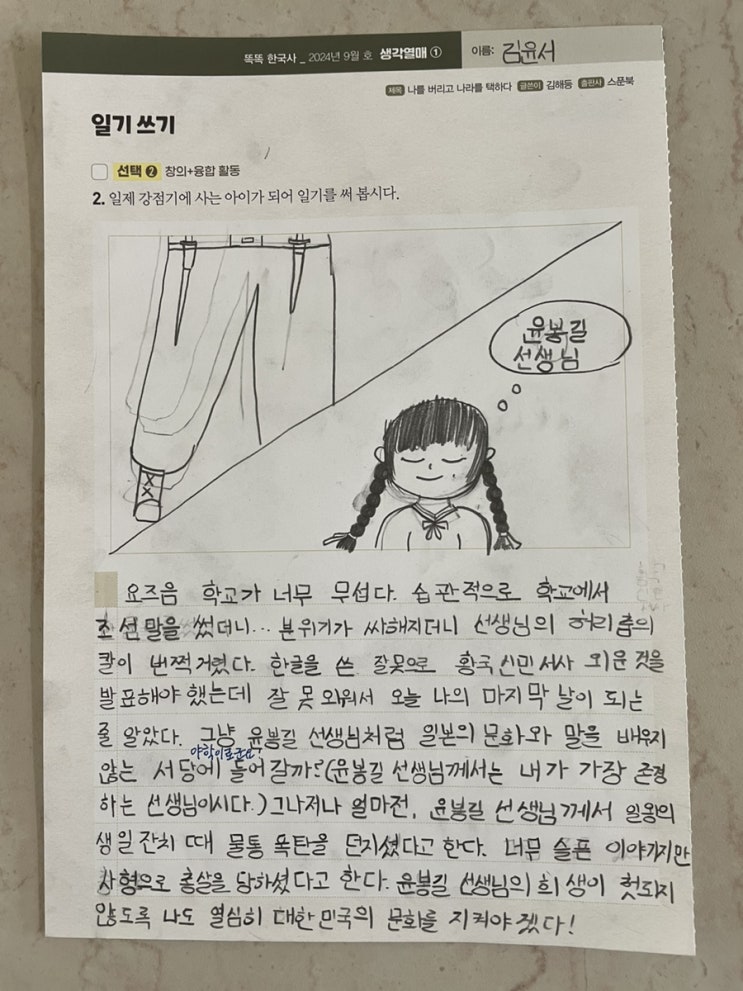 똑똑 한국사 _ 2024년 9월 호 생각열매 ① 이름: 김윤서
제목 나를 버리고 나라를 택하다 글쓴이 김해등 출판사 스푼북
일기 쓰기
선택 ❷ 창의+융합 활동
2. 일제 강점기에 사는 아이가 되어 일기를 써 봅시다.
윤봉길
선생님
요즈음 학교가 너무 무섭다. 습관적으로 학교에서
조선말을 썼더니... 분위기가 싸해지더니 선생님의 허리춤의
칼이 번쩍거렸다. 한글을 쓴 잘못으로 황국신민서사 외운 것을
발표해야 했는데 잘 못 외워서 오늘 나의 마지막 날이 되는
줄 알았다. 그냥 윤봉길 선생님처럼 일본의 문화와 말을 배우지
야학이로군요!
않는 서당에 들어갈까?(윤봉길 선생님께서는 내가 가장 존경
하는 선생님이시다.) 그나저나 얼마전, 윤봉길 선생님께서 일왕의
생일잔치 때 물통 폭탄을 던지셨다고 한다. 너무 슬픈 이야기지만
사형으로 총살을 당하셨다고 한다. 윤봉길 선생님의 희생이 헛되지
않도록 나도 열심히 대한민국의 문화를 지켜야겠다!